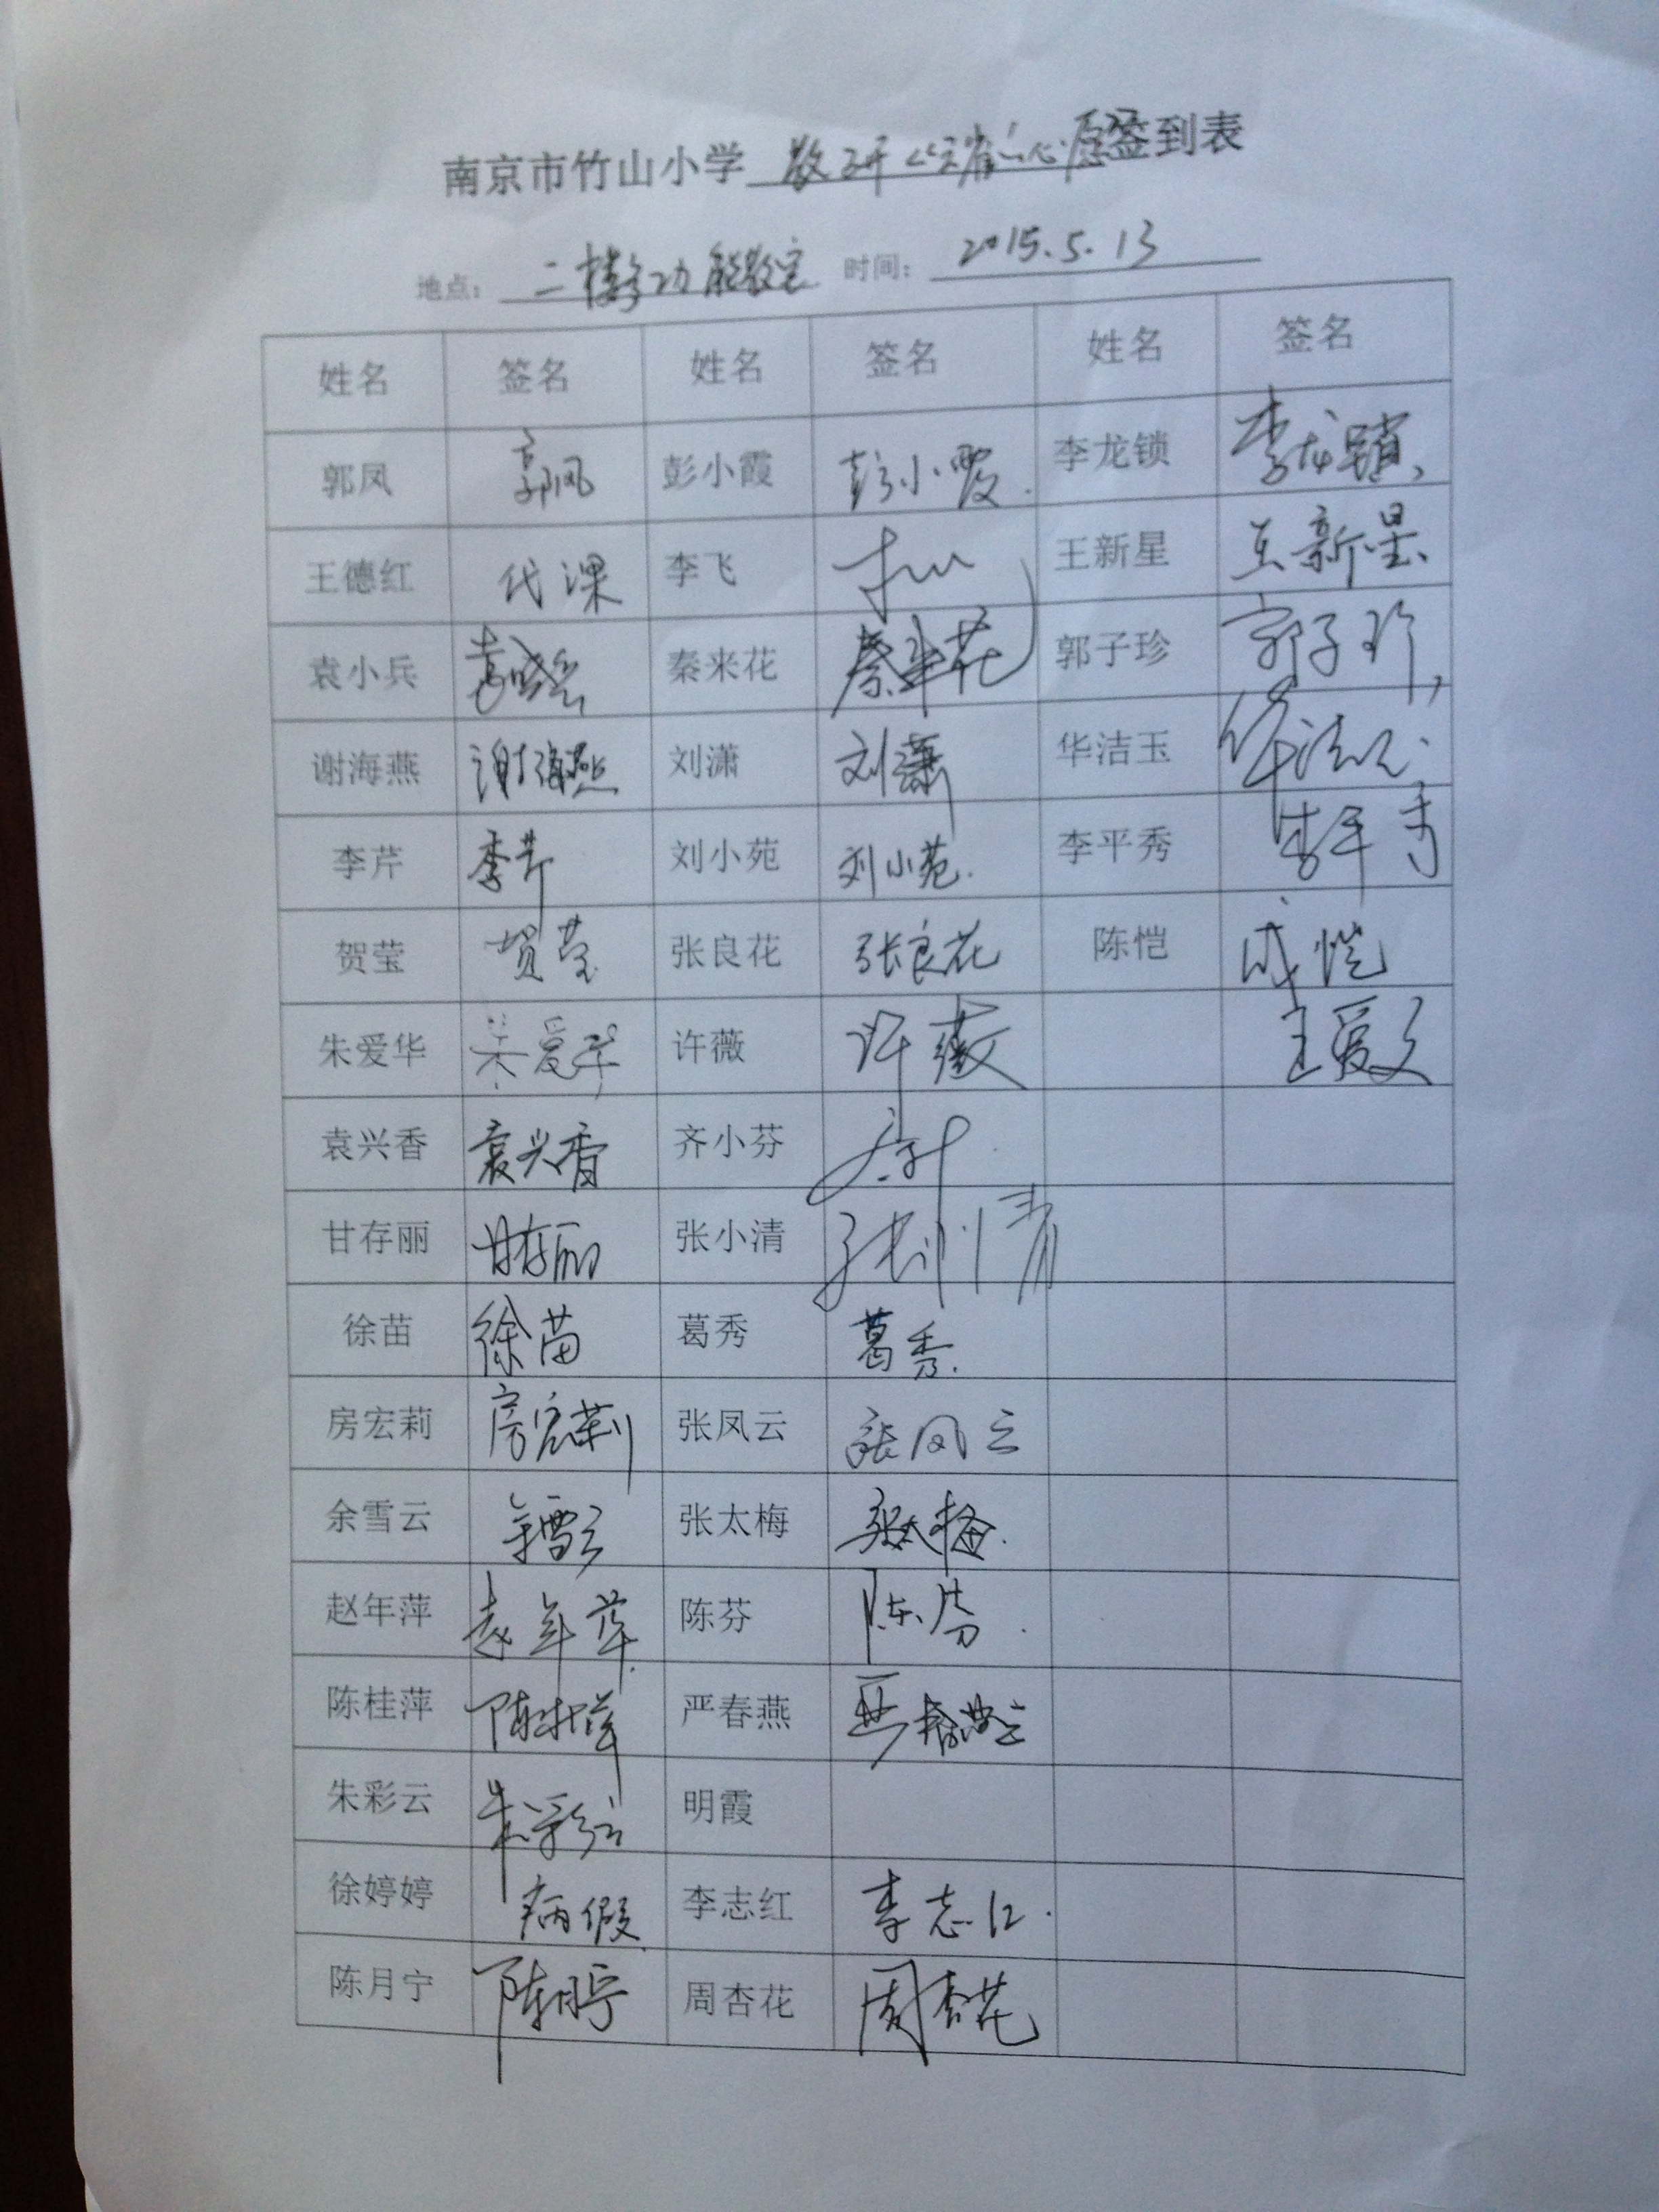 南京市竹山小学 签到表
地点： 二楼多功能教室 时间： 2015.5.13
姓名 签名 姓名 签名 姓名 签名
郭凤 郭凤 彭小霞 彭小霞 李龙锁 李龙锁
王德红 代课 李飞 王新星 王新星
袁小兵 秦来花 秦来花 郭子珍 郭子珍
谢海燕 谢海燕 刘潇 刘潇 华洁玉 华洁玉
李芹 李芹 刘小苑 刘小苑 李平秀 李平秀
贺莹 贺莹 张良花 张良花 陈恺
朱爱华 朱爱华 许薇 许薇 王爱文
袁兴香 袁兴香 齐小芬
甘存丽 甘存丽 张小清 张小清
徐苗 徐苗 葛秀 葛秀
房宏莉 房宏莉 张凤云 张凤云
余雪云 余雪云 张太梅 张太梅
赵年萍 赵年萍 陈芬 陈芬
陈桂萍 陈桂萍 严春燕 严春燕
朱彩云 朱彩云 明霞
徐婷婷 病假 李志红 李志红
陈月宁 陈月宁 周杏花 周杏花